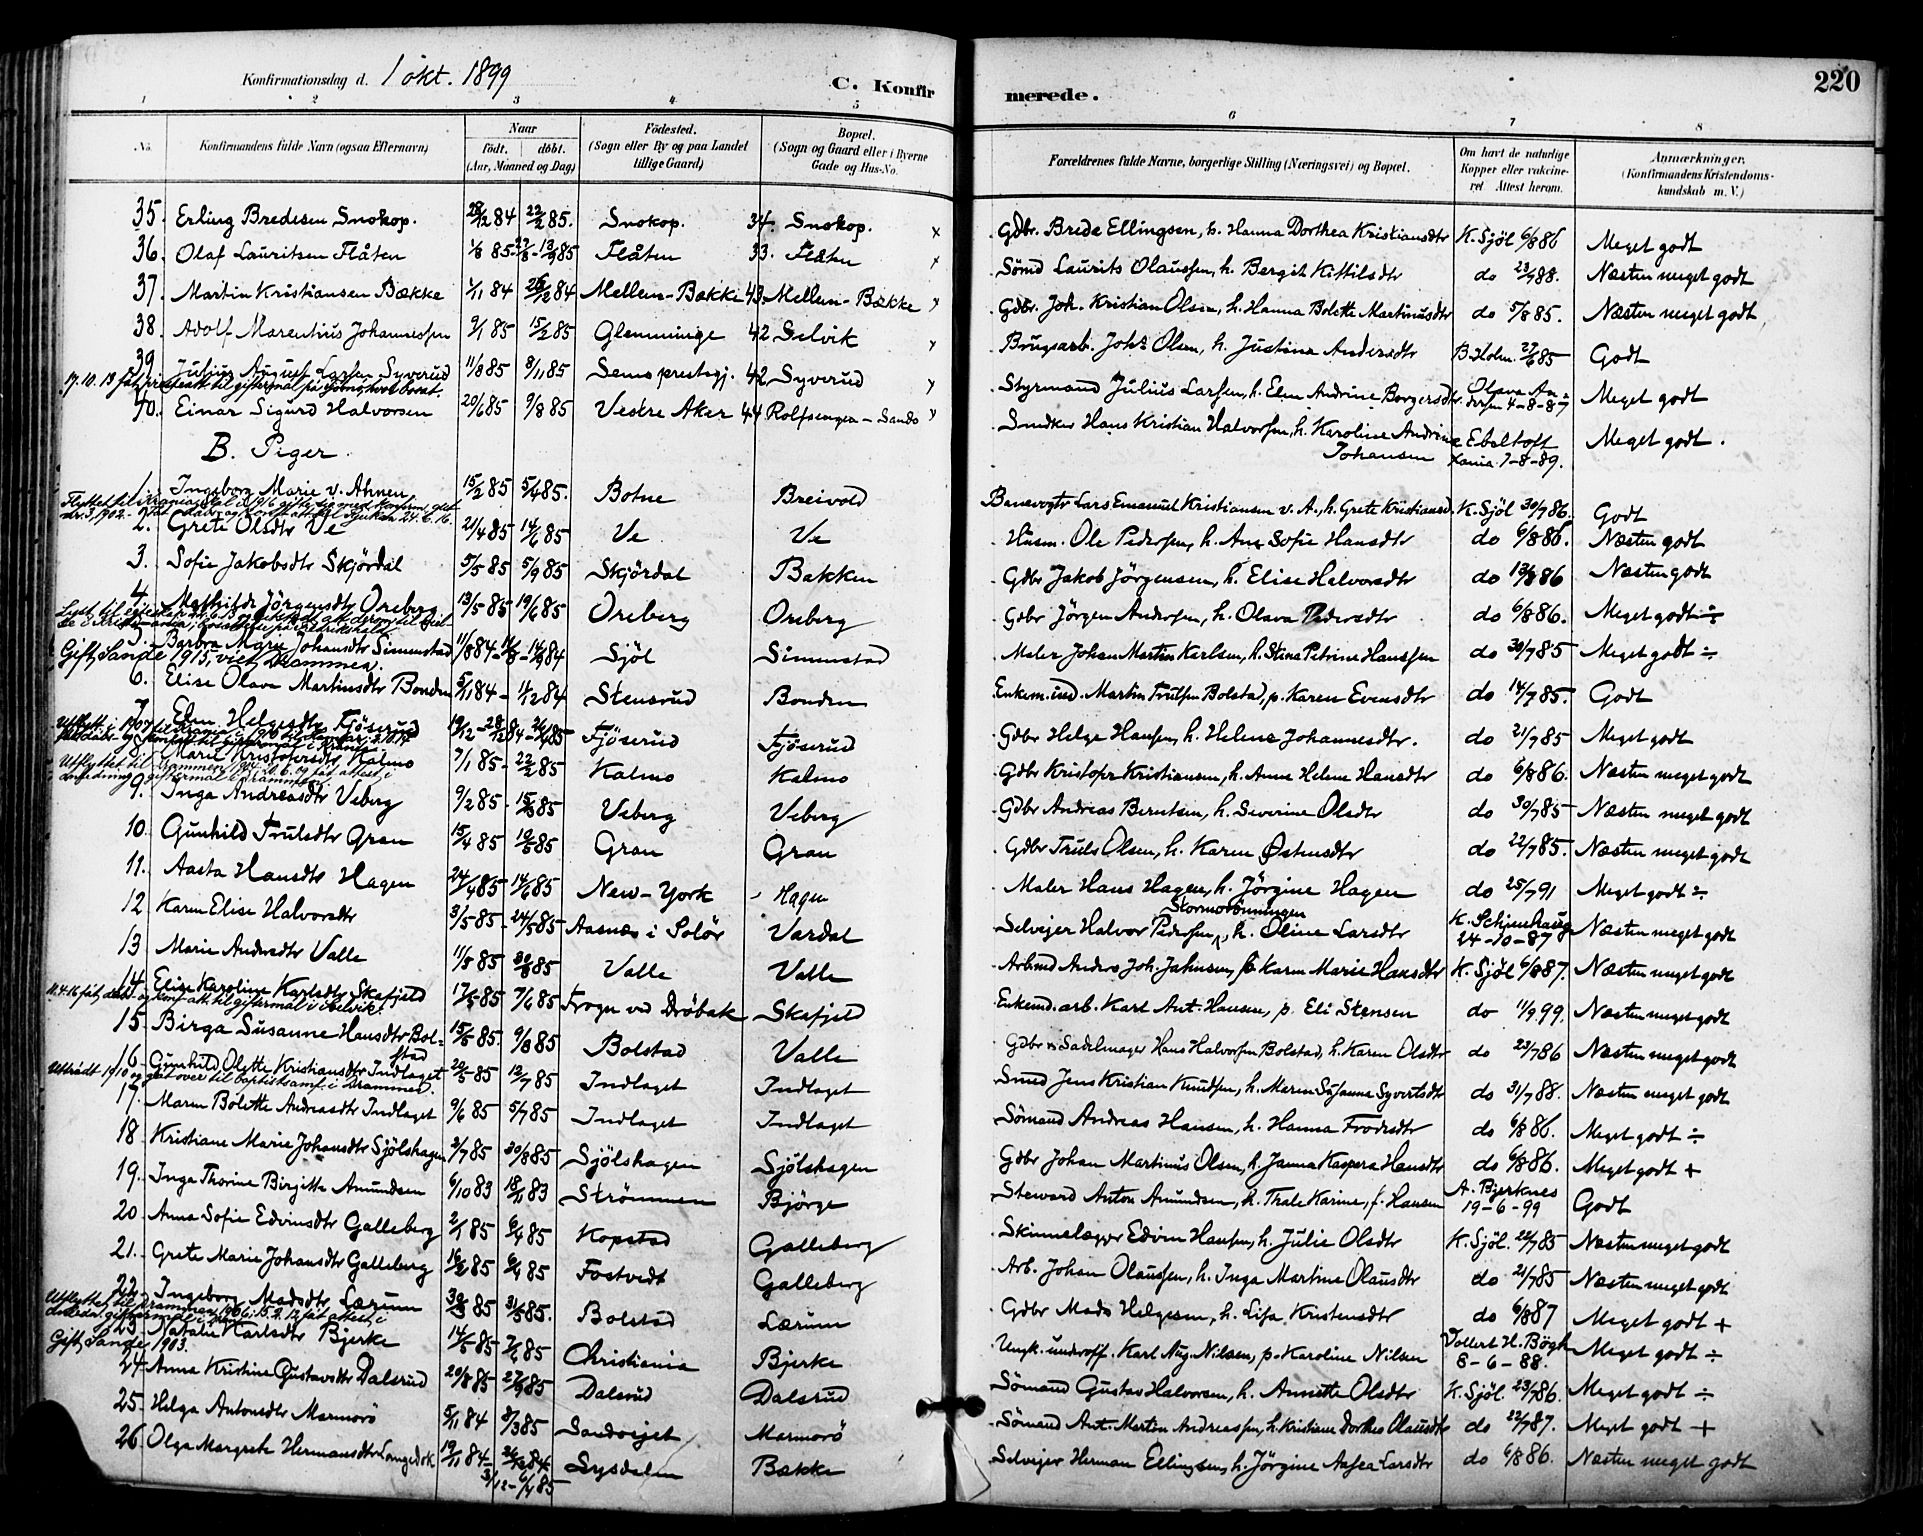 Konfirmationsdag d. 1 okt. 1899
C. Konfirmerede.
220
1 2 3 4 5 6 7 8
No. Konfirmandens fulde Navn (ogsaa Efternavn) Naar födt. döbt. (Aar, Maaned og Dag) Födested. (Sogn eller By og paa Landet tillige Gaard) Bopæl. (Sogn og Gaard eller i Byerne Gade og Hus-No. Forældrenes fulde Navne, borgerlige Stilling (Næringsvei) og Bopæl. Om havt de naturlige Kopper eller vakcineret Attest herom. Anmærkninger, (Konfirmandens Kristendomskundskab m. V.)
35. Erling Bredesen Snekop. 28/12 84 22/2 85. Snekop. 34. Snekop. x Gdbr. Brede Ellingsen, h. Hanna Dorthea Kristiansdtr K. Sjöl 6/8 86 Meget godt
36. Olaf Lauritsen Flåten 1/8 85 - 13/9 85 Flåten 33. Flåten x Sömd Laurits Olaussen, h. Bergit Kittilsdtr do 23/7 88. Næsten meget godt
37. Martin Kristiansen Bække 1/11 84 26/12 84 Mellem-Bække 43. Mellem-Bække x Gdbr. Joh. Kristian Olsen, h. Hanna Bolette Martinusdtr do 5/8 85. Næsten meget godt
38. Adolf Marentius Johannessen 9/1 85 15/2 85 Glemminge 42 Selvik x Brugsarb. Johs Olsen, h. Justine Andersdtr B. Holm. 27/6 85 Godt
39 Julius August Larsen Syverud 11/8 85 8/11 85 Sems prestegj. 42 Syverud x Styrmand Julius Larsen, h. Elen Andrine Borgersdtr. Olava Andersen 4-8-87 Meget godt
40. Einar Sigurd Halvorsen 20/6 85 9/8 85 Vestre Aker 44 Rolfsengen - Sando x Snedker Hans Kristian Halvorsen, h. Karoline Andrine Johansen Ebeltoft Xania 7-8-89. Meget godt.
B. Piger.
1. Ingeborg Marie v. Ahnen 15/2 85 5/4 85. Botne Breivold Banevogtr Lars Emanuel Kristiansen v. A., h. Grete Kristiansd. K. Sjöl 30/7 86. Godt
2. Grete Olsdtr Ve 21/4 85 14/6 85 Ve Ve Husm. Ole Pedersen, h. Ane Sofie Hansdtr do 6/8 86. Næsten godt
3. Sofie Jakobsdtr Skjördal 5/5 85 5/9 85 Skjördal Bakken Gdbr Jakob Jörgensen, h. Elise Halvorsdtr do 13/8 86 Næsten godt
4. Mathilde Jörgensdtr Oreberg 13/5 85 19/6 85 Oreberg Oreberg Gdbr Jörgen Andersen, h. Olava Pedersdtr do 6/8 86. Meget godt ÷
5. Barbra Marie Johansdtr Simenstad 11/8 84 - 14/9 84 Sjöl Simenstad Maler Johan Martin Karlsen, h. Stina Petrine Hanssen do 30/7 85 Meget godt ÷
Gift, Sande 1915, viet, Drammen.
6. Elise Olava Martinsdtr Bonden 5/11 84 - 1/12 84 Stensrud Bonden Enkem. Martin Trulsen Bolstad, p. Karen Evensdtr do 14/7 85. Godt
7. Elen Helgesdtr Fjöserud Fjöserud Fjöserud Gdbr Helge Hansen, h. Helene Johannesdtr. do 21/7 85 Meget godt
8. Marie Kristofersdtr Kalmo 7/1 85 - 22/2 85 Kalmo Kalmo Gdbr Kristofr Kristiansen, h. Anne Helene Hansdtr do 6/8 86. Næsten meget godt
9. Inga Andreasdtr Veberg 9/2 85 - 15/3 85 Veberg Veberg Gdbr Andreas Berntsen, h. Severine Olsdtr do 30/7 85 Næsten meget godt
10. Gunhild Trulsdtr Gran 15/4 85 19/5 85 Gran Gran Gdbr Truls Olsen, h. Karen Østensdtr do 22/7 85. Næsten meget godt
11. Aasta Hansdtr Hagen 24/4 85 14/6 85 New-York Hagen Maler Hans Hagen, h. Jörgine Hagen do 25/7 91 Meget godt ÷
12 Karen Elise Halvorsdtr 3/5 85 - 24/5 85 Aasnæs i Solör Vardal Selvejer Halvor Pedersen, h. Oline Larsdtr K. Schjenhaug 24-10-87 Næsten meget godt
13 Marie Andersdtr Valle 11/5 85 30/8 85 Valle Valle Arbmd Anders Joh. Jahnsen, h. Karen Marie Hansdtr K. Sjöl 6/8 87. Næsten meget godt
14. Elise Karoline Karlsdtr Skafjeld 17/5 85 7/6 85 Frogn ved Dröbak Skafjeld Enkemd. arb. Karl Ant. Hansen, p. Eli Stensen do 11/9 99. Næsten meget godt
15. Birga Susanne Hansdtr Bolstad 15/5 85. 9/8 85 Bolstad Valle Gdbr & Sadelmager Hans Halvorsen Bolstad, h. Karen Olsdtr do 23/7 86 Næsten meget godt
16. Gunhild Olette Kristiansdtr Indlaget 22/5 85 12/7 85 Indlaget Indlaget Smed Jens Kristian Knudsen, h. Maren Susanne Syvertsdtr do 31/7 88. Næsten meget godt
Uttrådt 1910 og gåt over til baptistsamf. i Drammen.
17. Maren Bolette Andreasdtr Indlaget 9/6 85 5/7 85 Indlaget Indlaget Sömand Andreas Hansen, h. Hanna Frodesdtr do 6/8 86. Meget godt ÷
18. Kristiane Marie Johansdtr Sjölshagen 2/7 85 30/8 85 Sjölshagen Sjölshagen Gdbr Johan Martinus Olsen, h. Janna Kaspera Hansdtr do 6/8 86. Meget godt +
19. Inga Thorine Birgitte Amundsen 6/10 83 18/11 83 Strömmen Björge Steward Anton Amundsen, h. Thale Karine, f. Hansen A. Bjerknes 19-6-99 Godt
20. Anna Sofie Edvinsdtr Galleberg 2/1 85 6/4 85 Kopstad Galleberg Skinnelægger Edvin Hansen, h. Julie Olsdtr K. Sjöl. 22/7 85 Næsten meget godt
21. Grete Marie Johansdtr Galleberg 16/2 85 6/4 85 Fostvedt Galleberg Arb. Johan Olaussen, h. Inga Martine Olausdtr do 21/7 85 Næsten meget godt
22. Ingeborg Madsdtr Lærum 30/3 85 31/5 85. Bolstad Lærum Gdbr Mads Helgesen, h. Lisa Kristensdtr do 6/8 87 Meget godt +
23. Natalie Karlsdtr Bjerke 14/5 85 7/6 85 Christiania Bjerke Ungk. underoff. Karl Aug. Nilsen, p. Karoline Nilsen Vollert H. Bögh 8-6-88. Meget godt ÷
Gift, Sande 1903.
24. Anna Kristine Gustavsdtr Dalsrud 20/8 85 27/9 85 Dalsrud Dalsrud Sömand Gustav Halvorsen, h. Annette Olsdtr K. Sjöl. 23/7 86. Meget godt ÷
25. Helga Antonsdtr Marmorö 5/11 84 8/3 85 Sandvejet Marmorö Sömand Ant. Martin Andreassen, h. Kristiane Dorthea Olausdtr do 22/7 87. Meget godt +
26 Olga Margrete Hermansdtr Langedok 19/11 84 - 26/12 84 3/12 - 6/4 85 Lysdalen Bække Selvejer Herman Ellingsen, h. Jörgine Aasea Larsdtr do 6/8 86. Næsten meget godt